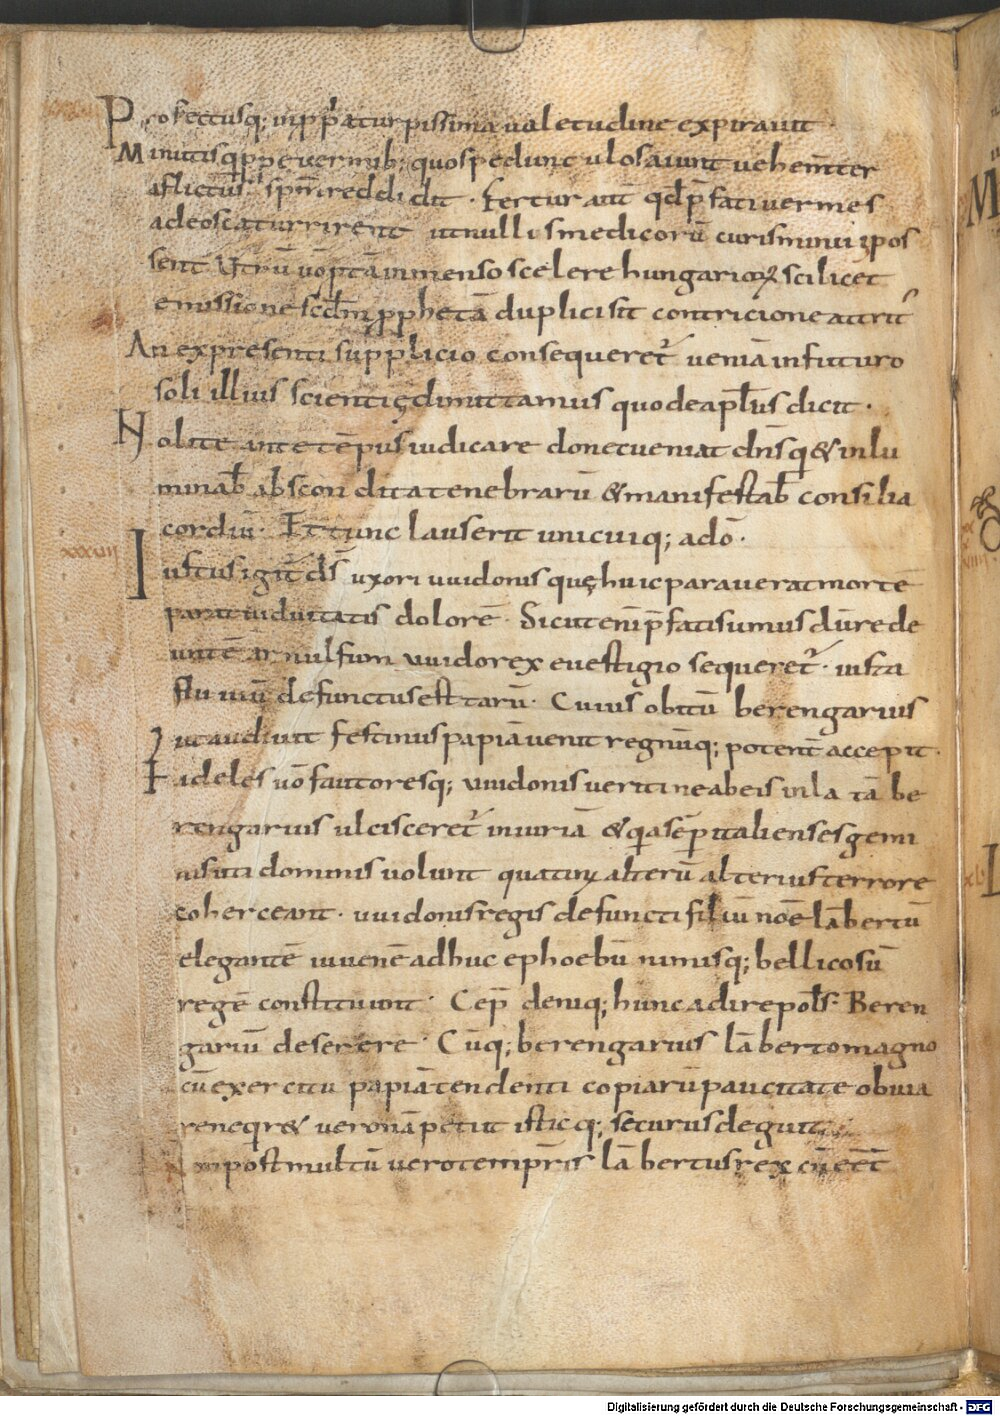 Profectusq; in ppriā turpissima ualetudine expirauit
Minutis q̄ppe uermib; quos pedunc ulos aiunt uehem̄ter
aflictus sp̄m reddidit · Fertur aut̄ qd̄ p̄fati uermes
adeo scaturrirent ut nullis medicorū curis minui pos
sent Vtrū ū ob tā inmenso scelere hungariorꝝ scilicet
emissione scd̄m ꝓphetā duplici sit contricione attrit
An ex presenti supplicio consequeret̄ ueniā in futuro
soli illius scientię dimittamus quo de apl̄us dicit ·
Nolite ante tēpus iudicare donec ueniat dn̄s q̄ & inlu
minab̄ abscondita tenebrarū & manifestab̄ consilia
cordiū · Et tunc laus erit unicuiq; a dō ·
xxxvııı
Iustus igit̄ ds̄ uxori uuidonis quę huic parauerat mortē
parat uiduitatis dolorē · Sicut eni p̄fati sumus dū rede
untē arnulfum uuido rex e uestigio sequeret̄ · iuxta
fluuiū defunctus est tarū · Cuius obitū berengarius
ut audiuit festinus papiā uenit regnūq; potent̄ accepit ·
Fideles uō fautoresq; uuidonis ueriti ne ab eis inlatā be
rengarius ulcisceret̄ iniuriā & q̄a sēp italienses gemi
nis uti dominis uolunt quatinꝰ alterū alterius terrore
coherceant · uuidonis regis defuncti filiū noē lābertū
elegantē iuuenē adhuc ephoebū nimisq; bellicosū
regē constituunt · Cep̄ deniq; hunc adire pol̄s · Beren
gariū deserere · Cūq; berengarius lāberto magno
cū exercitu papiā tendenti copiarū paucitate obuia
re neq̄ret ueronā petiit isticq; securus deguit
Non post multū uero temp̄ris lābertus rex cū eēt
Digitalisierung gefördert durch die Deutsche Forschungsgemeinschaft - DFG